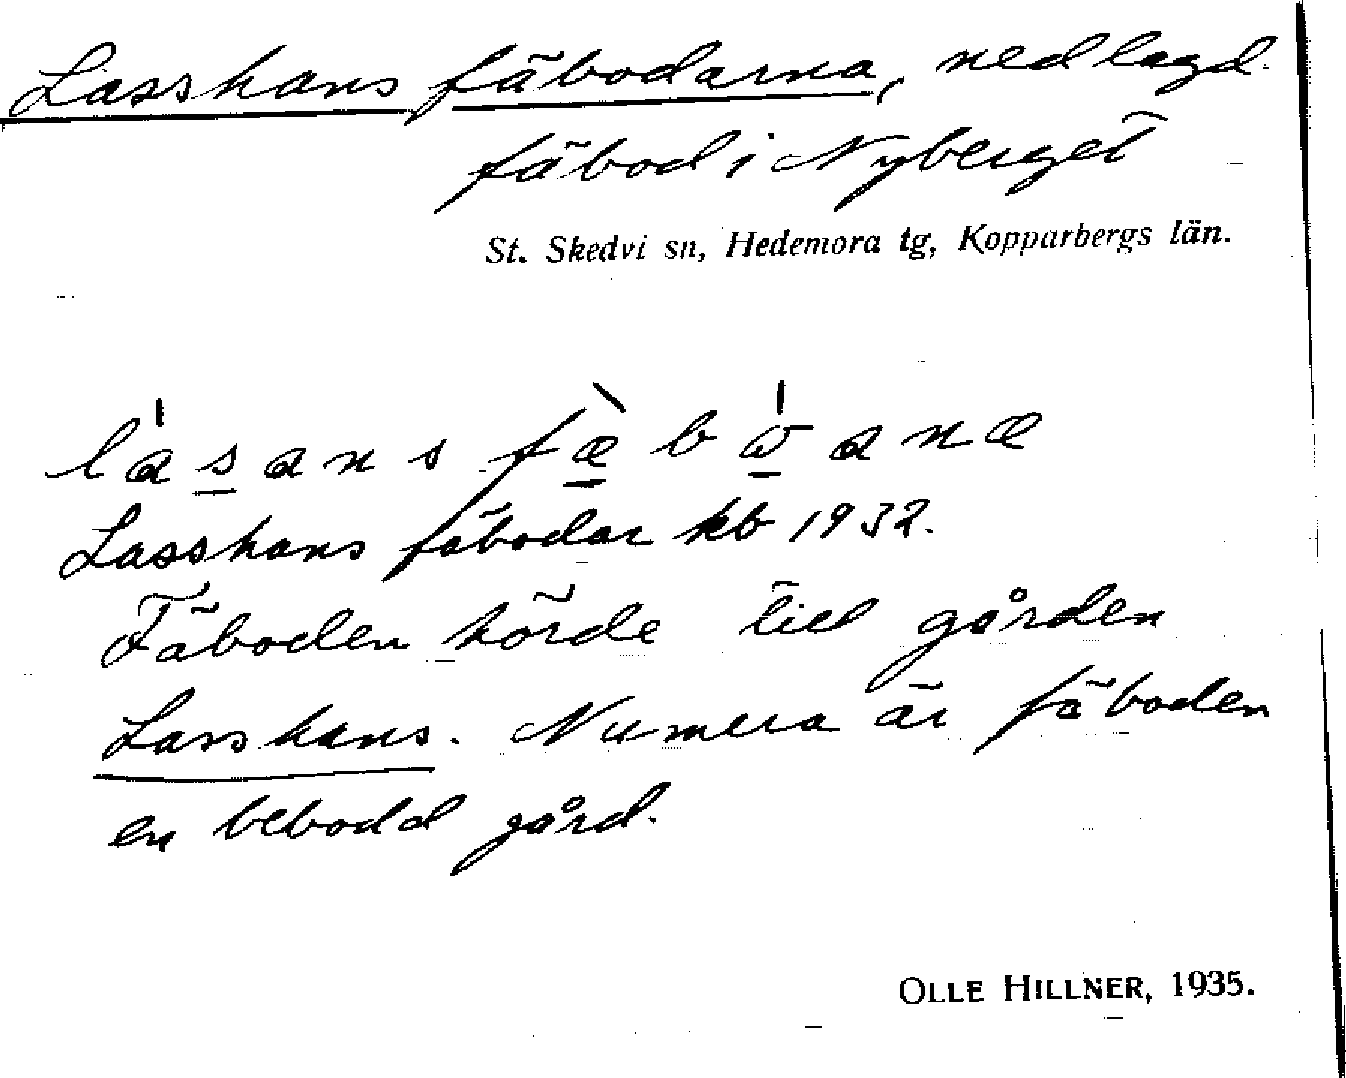 Lasshans fäbodarna, nedlagd
fäbod i Nyberget
St. Skedvi sn, Hedemora tg, Kopparbergs län.
Lasshans fäbodar kb 1932.
Fäboden hörde till gården
Lasshans. Numera är fäboden
en bebodd gård.
OLLE HILLNER, 1935.